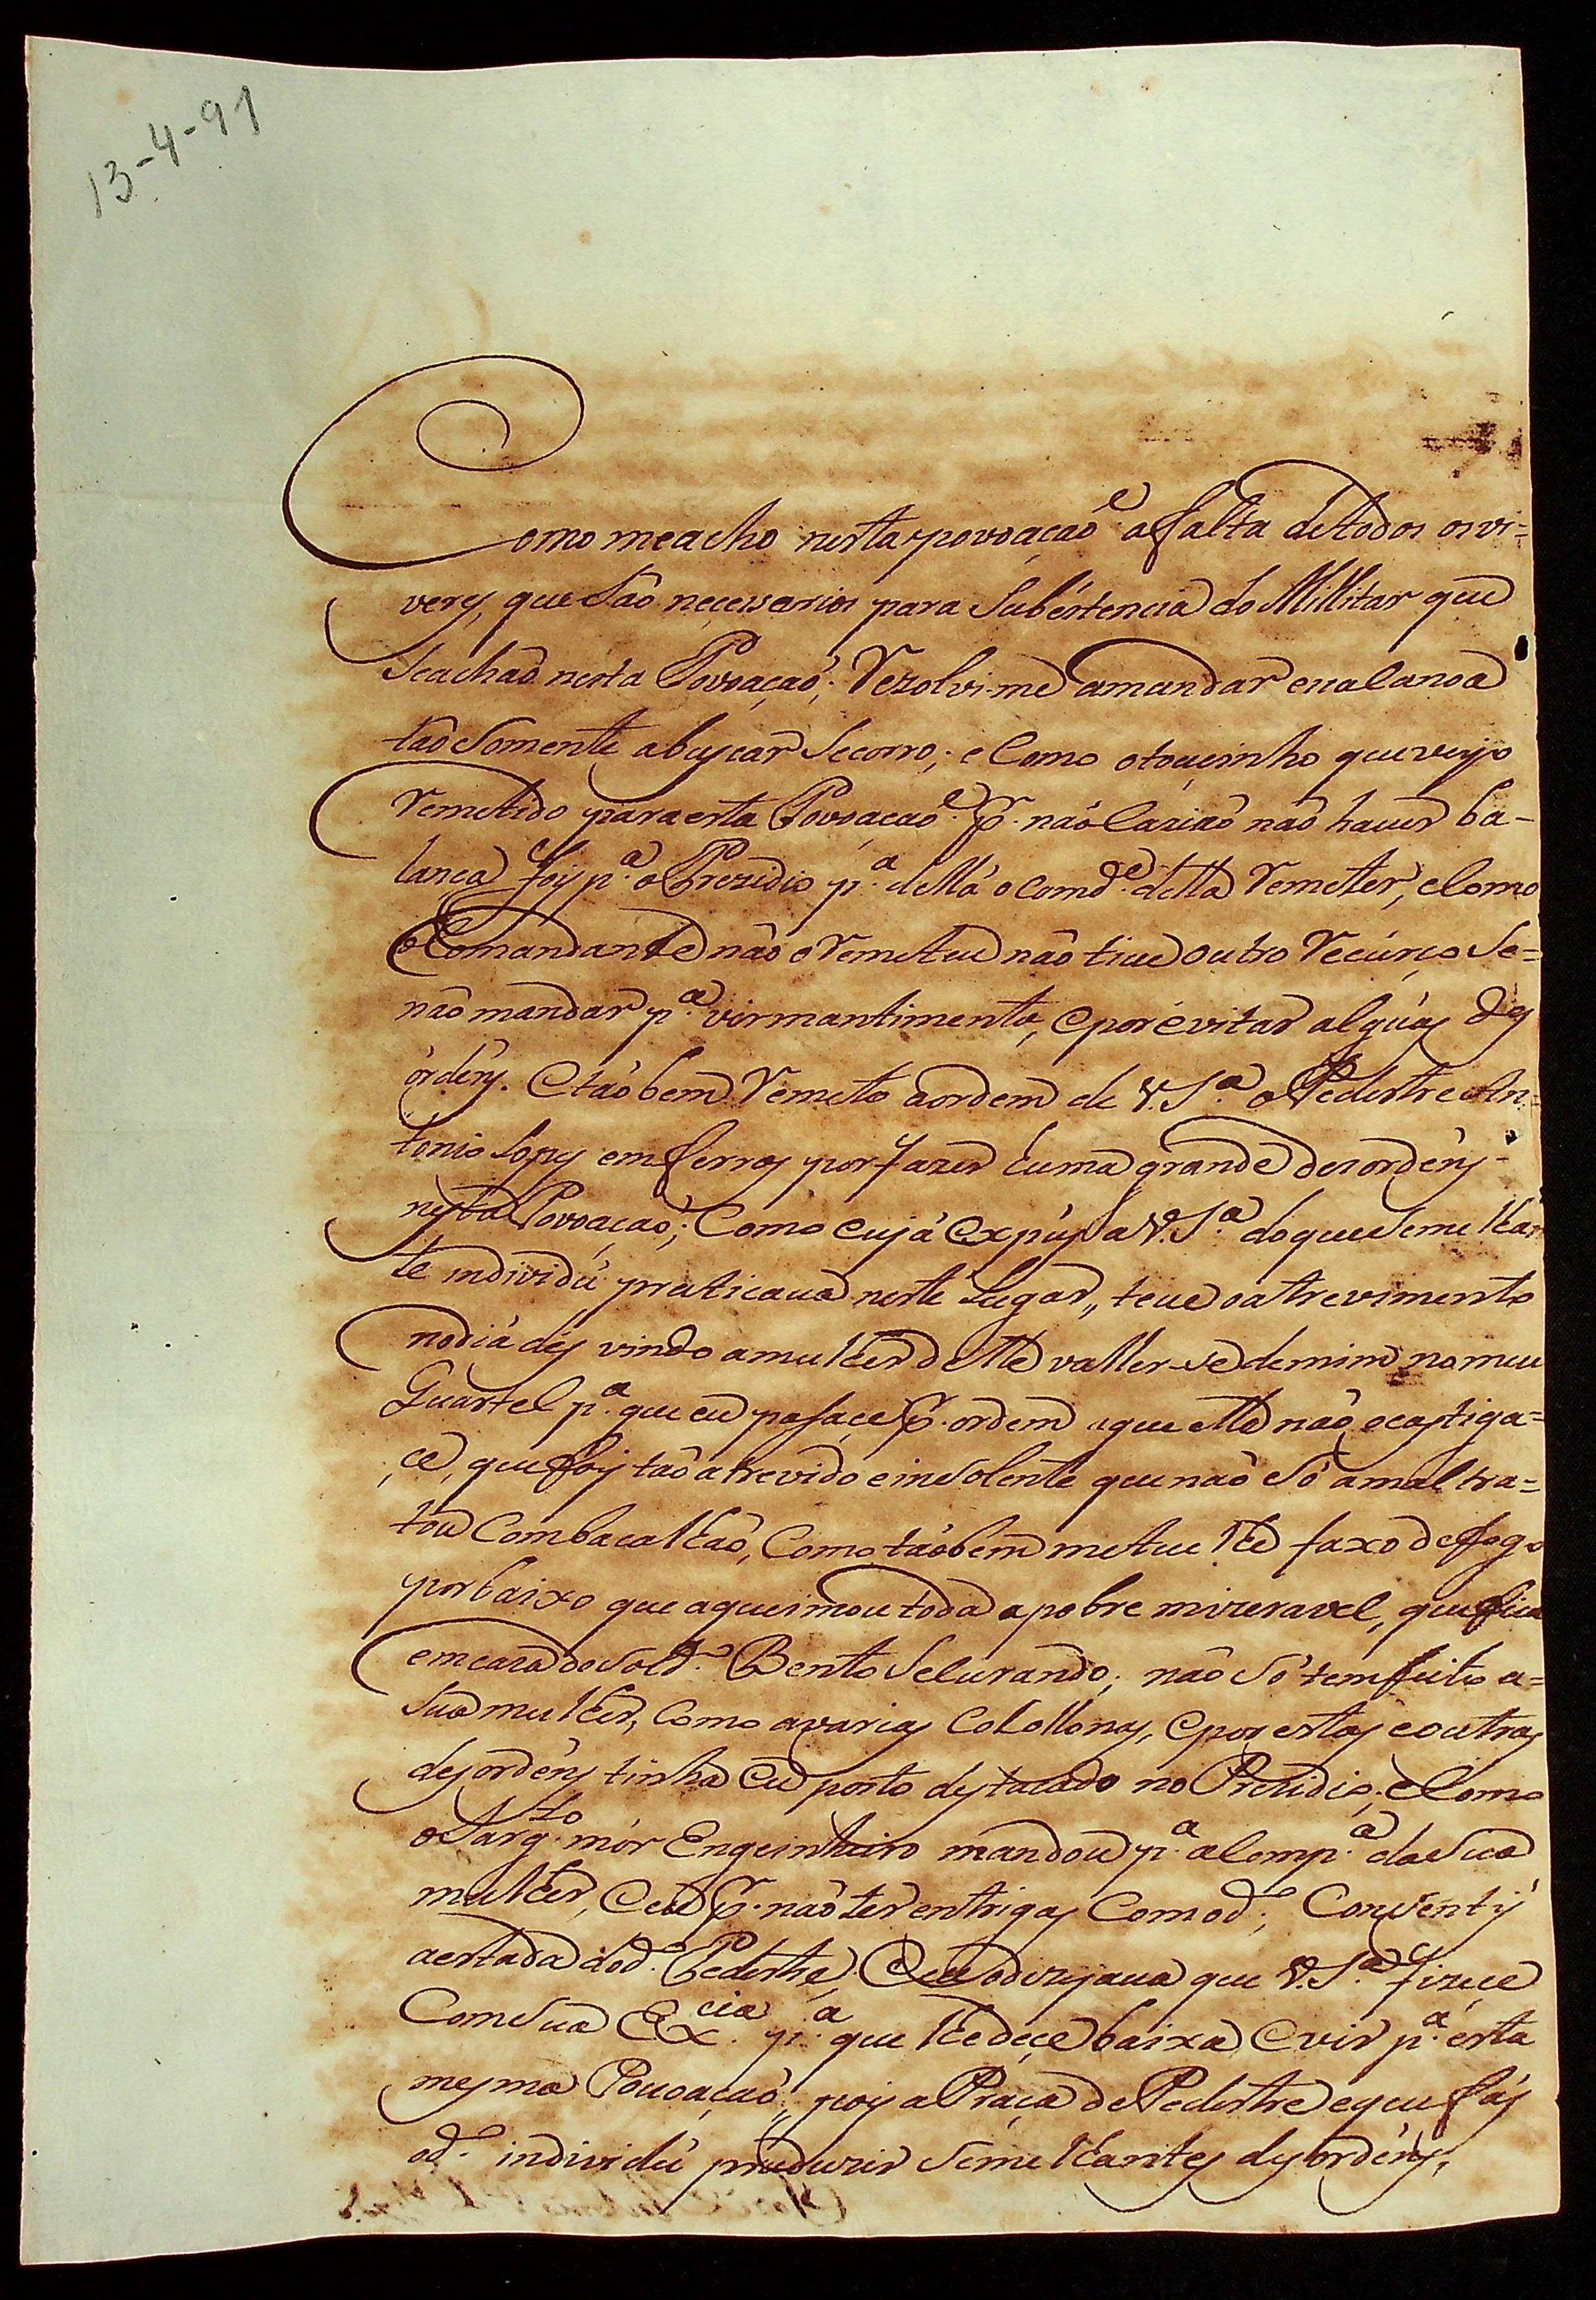 13-4-91
Como meacho nesta povoaçaõ e afalta detodos os vi=
veres, que saõ necessarios para Subéstencia do Millitar que
seachaõ nesta Povoaçaõ; Rezolvi-me amandar
taõ somente abuscar Secorro; e Como otoucinho que veyo
Remetido para esta Povoaçaõ e p. naõ naõ haver ba-
lança foy p.ª o Prezidio p.ª dellá o Comd.e della Remeter, e Como
o Comandante naõ o Remeteu naõ tive outro Recurço Se=
naõ mandar p.ª vir mantimento, e por évitar algúas des
órdéns. E taõ bem Remeto aordem de V.S.ª o Pedestre An=
tonio Lopes em ferros por fazer huma grande desordéns
nesta Povoaçaõ; Como eu já Expús a V.S.ª do que Semelhan
te individú praticava neste Lugar,, teve oatrevimento
nodiá dés vindo amulher delle valler-se demim nomeu
Quartel p.ª que eu pasaçe p. ordem aque elle naõ ocastiga=
çe, que foy taõ atrevido e insolente que naõ Só amaltra=
tou Com bacalhaõ, Como taõbem meteu lhe faxo de fogo
por baixo que aqueimou toda apobre mizeravel, que fica
em caza do Sold.º Bento Selurando; naõ Só tem feito a=
Sua mulher, Como avarias Collonas, e por estas eoutras
desordéns tinha Eu posto destacado no Prezidio; e Como
o Sarg.to mór Engeinheiro mandou p.ª a Comp.ª da Sua
mulher, e eu p. naõ ter entrigas Com od.º, Conséntÿ
aestada dod.º Pedestre, e eu odizejava que V.S.ª fizeçe
Com Sua Ex.cia p.ª que lhe deçe baixa e vir p.ª esta
mesma Povoaçaõ; pois a Praça de Pedestre eque fás
od.º individú produzir Semelhantes desordéns,